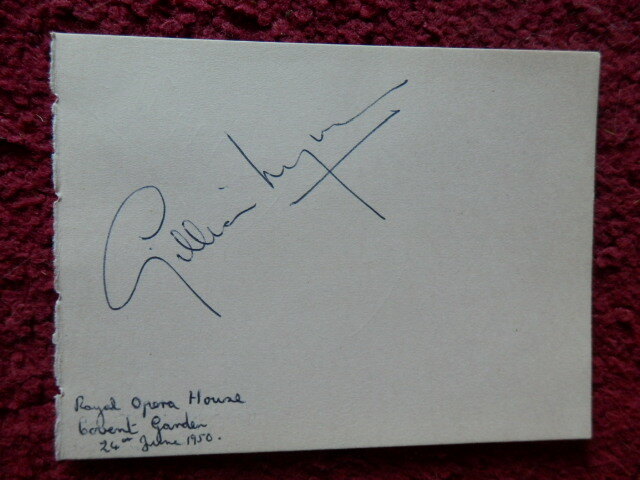 Gillian Lynn
Royal Opera House
Covent Garden
24th June 1950.